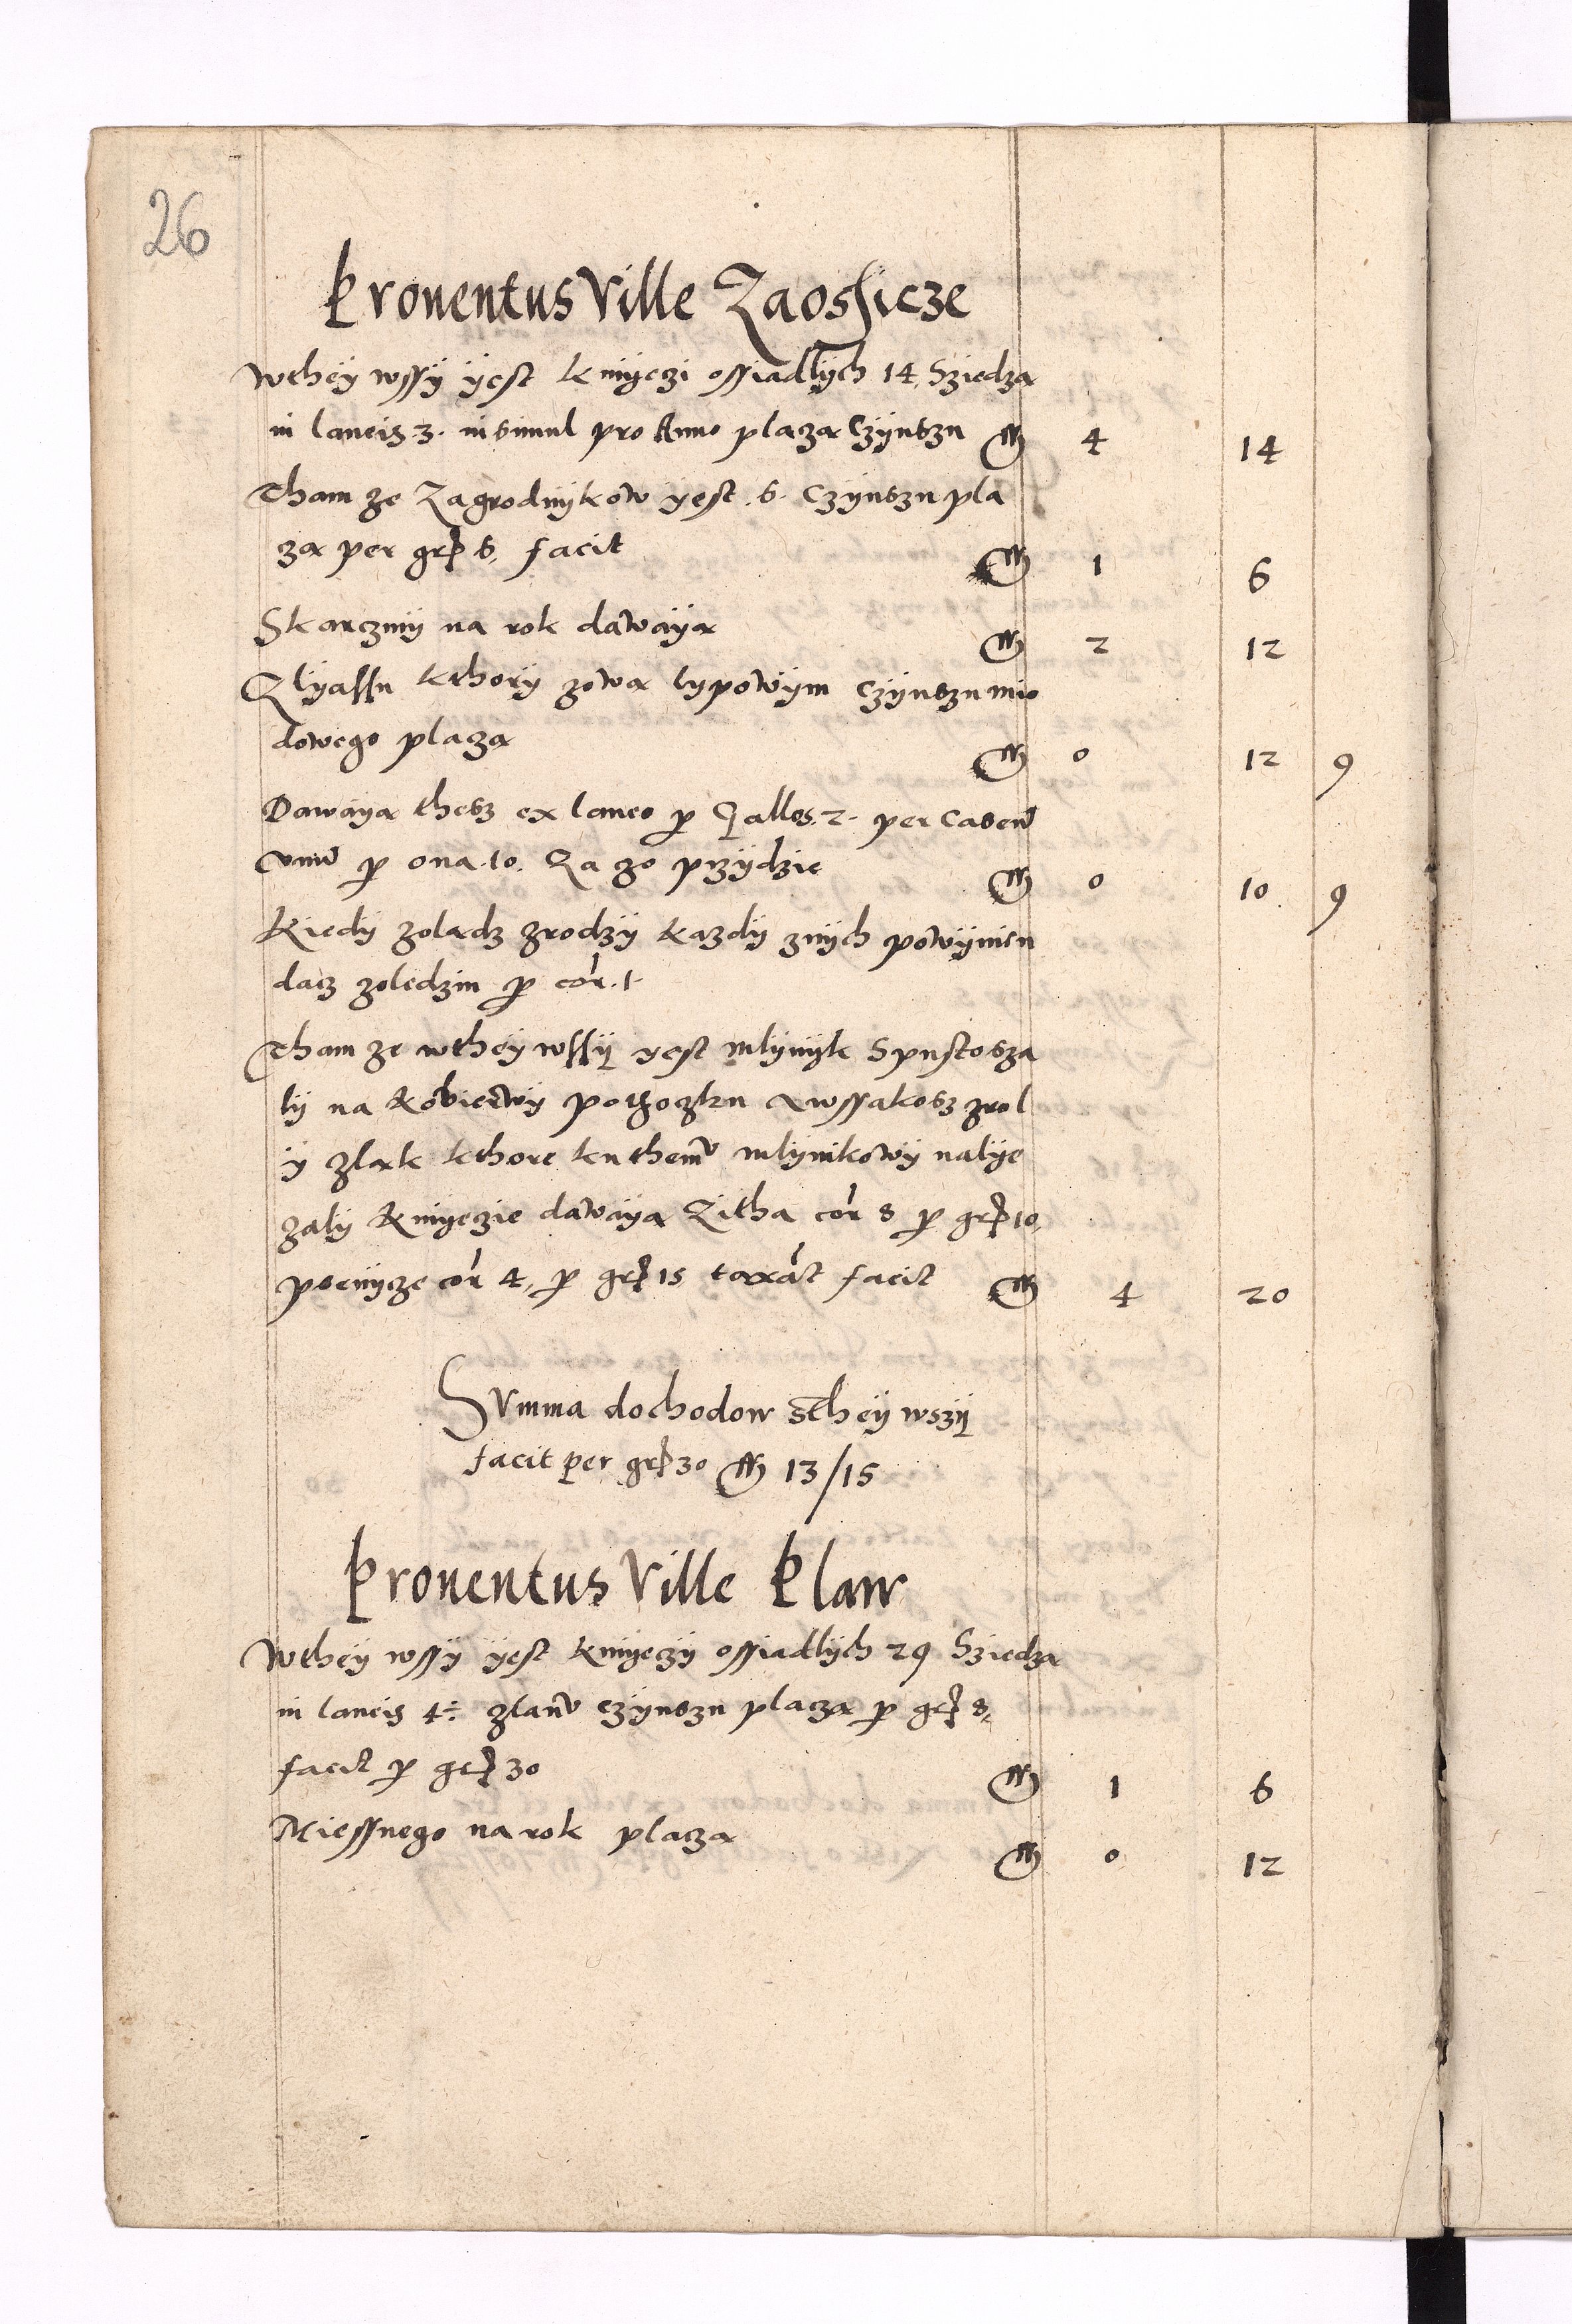 26
Proventus Ville Zaossicze
Wthey wssy yest kmyeczi ossiadlych 14. Sziedza
in laneis 3. insimul pro Anno placza Czynszu m 4 14
Tham ze Zagrodnykow yest .6. Czynszu pla
za per gr 6, facit m 1 6
Skarczmy na rok dawaya m 2 12
Zlyassu kthory zowa lypowym Czynszu mio
dowego placza m 0 12 9
Dawaya thesz ex laneo p Gallos. 2. per Caseu
vnu p oua .10. Za zo przydzie m 0 10 9
Kiedy zoladz zrodzy kazdy znych powynien
dacz zoledzin p cor. 1.
Tham ze wthey wssy yest mlynyk Spustosza
ly na potoczku Awssakosz zrol
y zlak kthore ku themv mlynikowy nalye
zaly Kmyeczie dawaya Zitha cor 8 p gr 10,
psenycze cor 4, p gr 15 taxat facit m 4 20
Summa dochodow sthey wszy
facit per gr 30 m 13/15
Proventus Ville Plaw
Wthey wssy yest kmyeczy ossiadlych 29 Sziedza
in laneis 4÷ zlanv czynszu placza p gr 8,
facit p gr 30 m 1 6
Miessnego na rok placza m 0 12